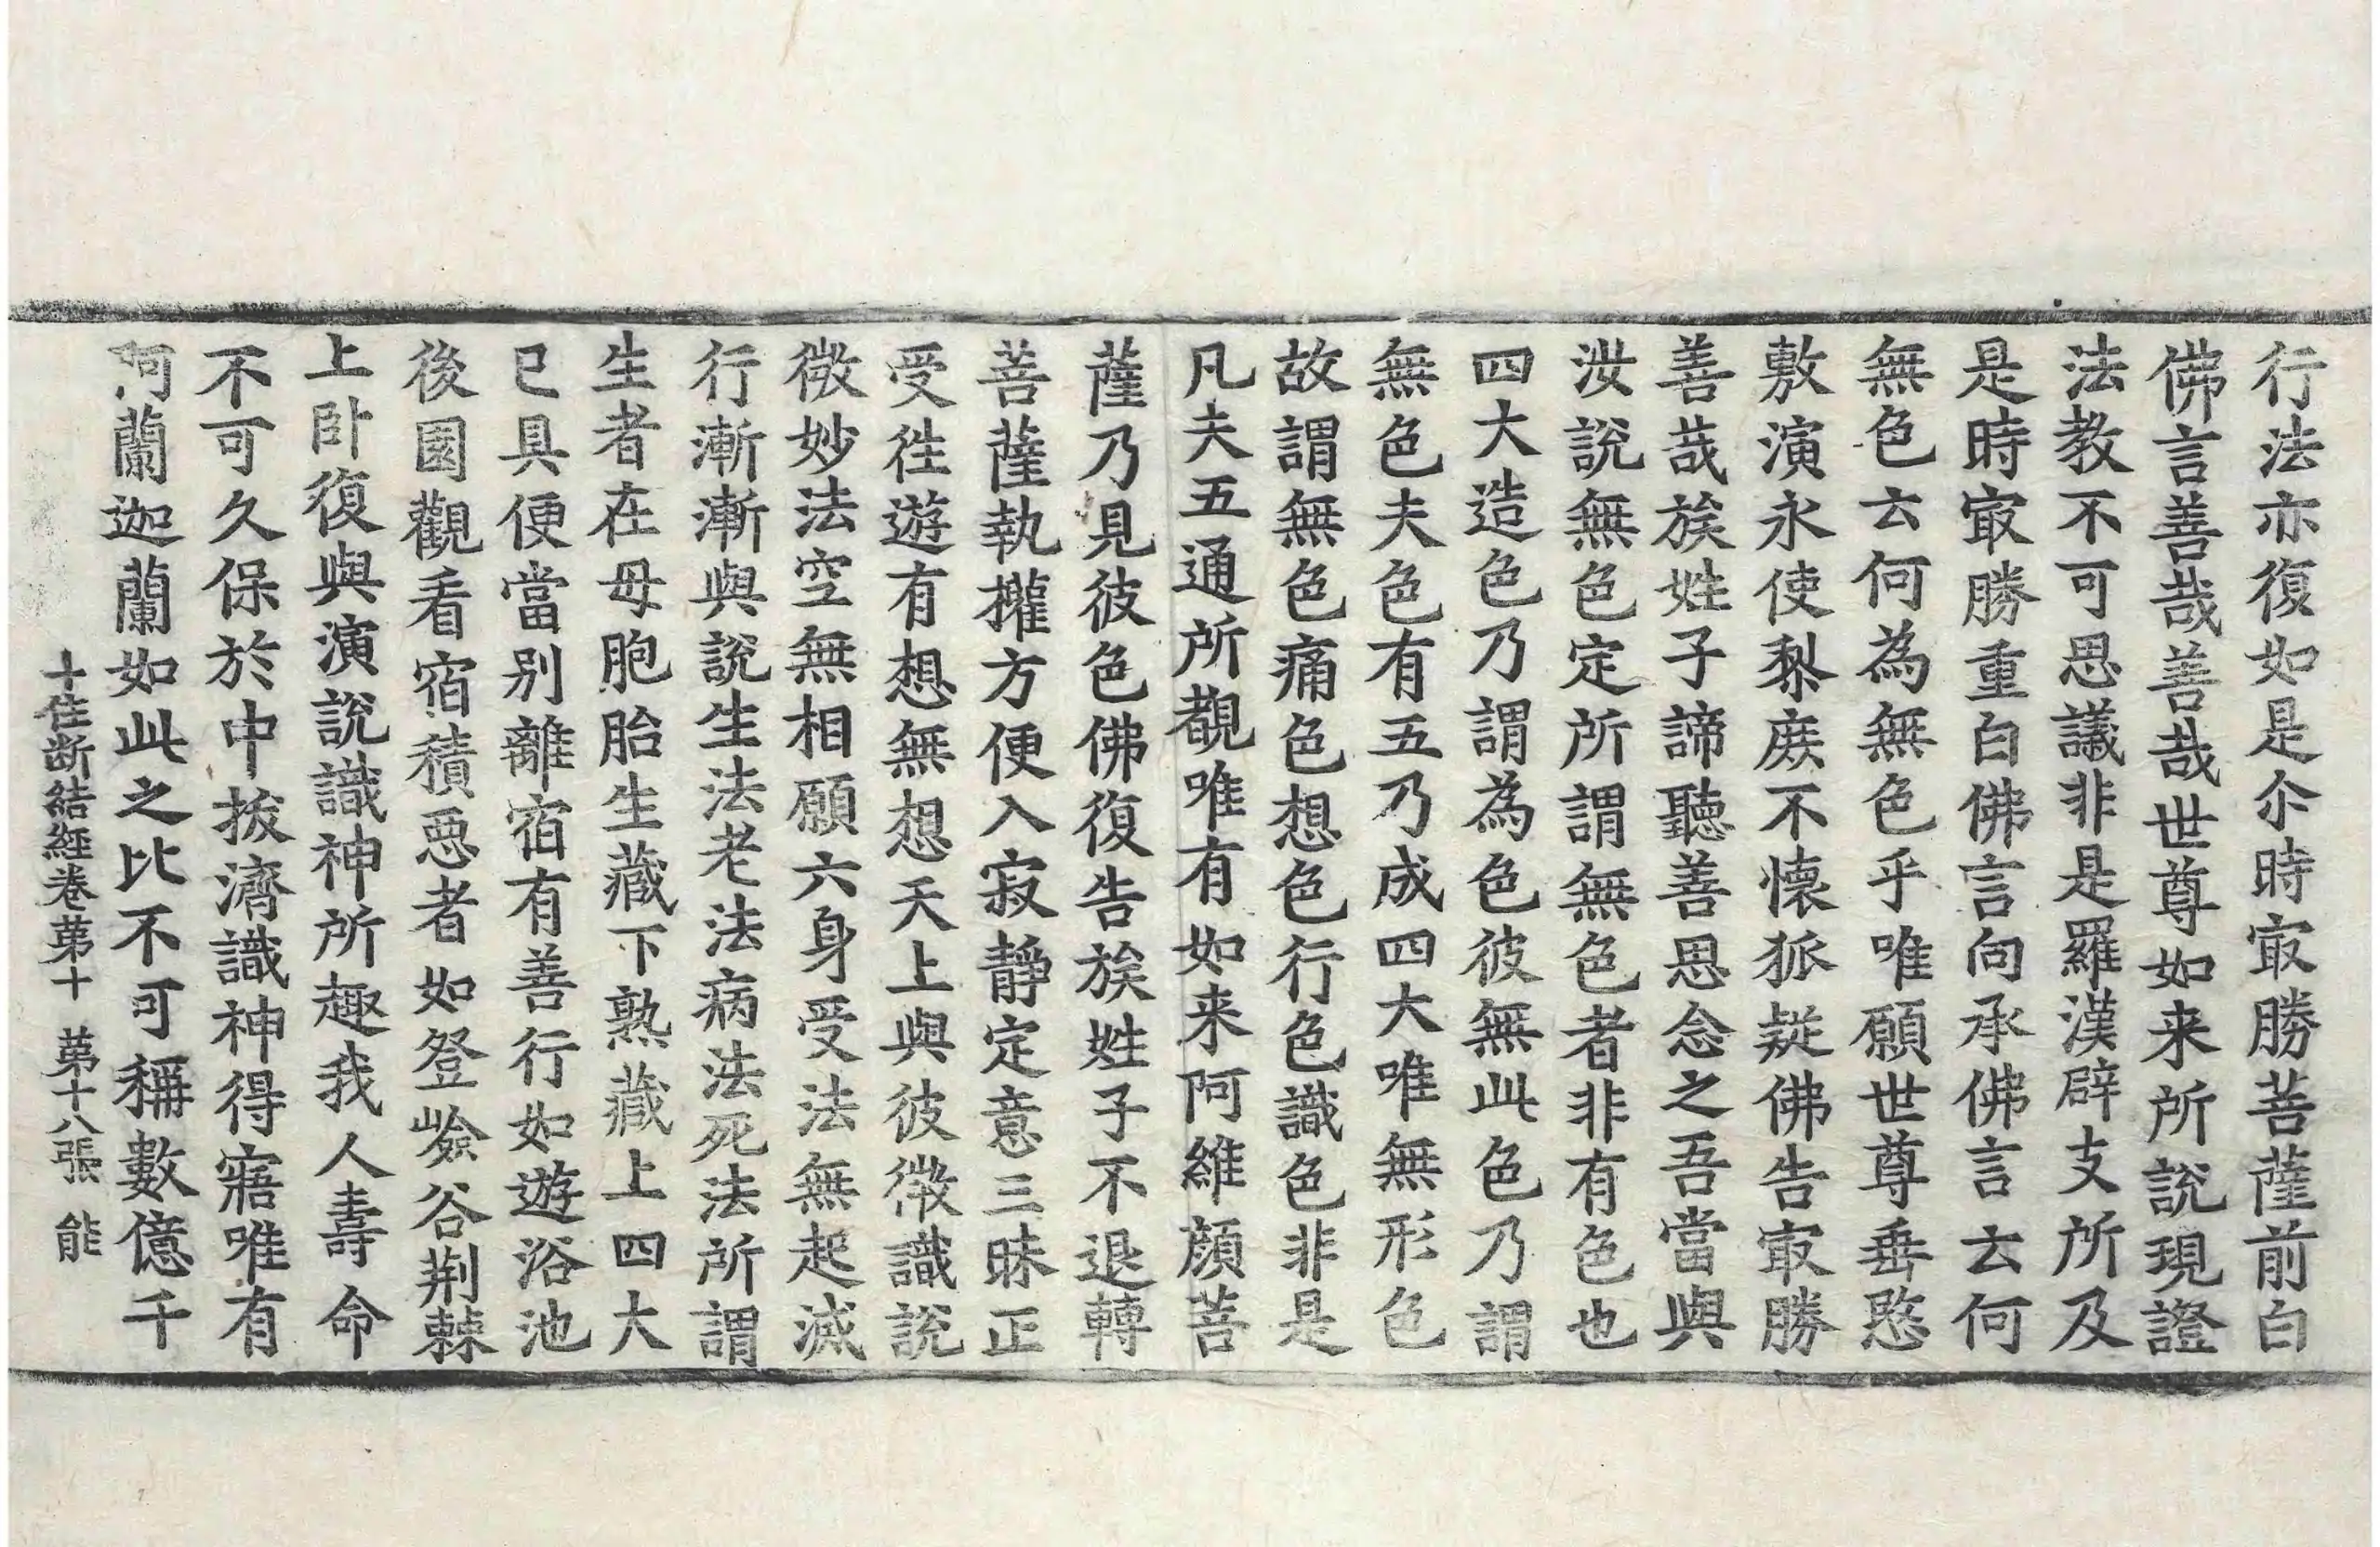 行法亦復如是尒時㝡勝菩薩前白
佛言善哉善哉世尊如来所說現證
法教不可思議非是羅漢辟支所及
是時㝡勝重白佛言向承佛言云何
無色云何為無色乎唯願世尊垂愍
敷演永使黎庶不懷狐疑佛告㝡勝
善哉族姓子諦聽善思念之吾當與
汝說無色定所謂無色者非有色也
四大造色乃謂為色彼無此色乃謂
無色夫色有五乃成四大唯無形色
故謂無色痛色想色行色識色非是
凡夫五通所覩唯有如来阿維顔菩
薩乃見彼色佛復告族姓子不退轉
菩薩執權方便入寂靜定意三昧正
受往遊有想無想天上與彼微識說
微妙法空無相願六身受法無起滅
行漸漸與說生法老法病法死法所謂
生者在母胞胎生藏下熟藏上四大
已具便當別離宿有善行如遊浴池
後園觀看宿積惡者如登嶮谷荆棘
上卧復與演說識神所趣我人壽命
不可久保於中拔濟識神得寤唯有
阿蘭迦蘭如此之比不可稱數億千
十住断結經卷苐十　苐十八張　能